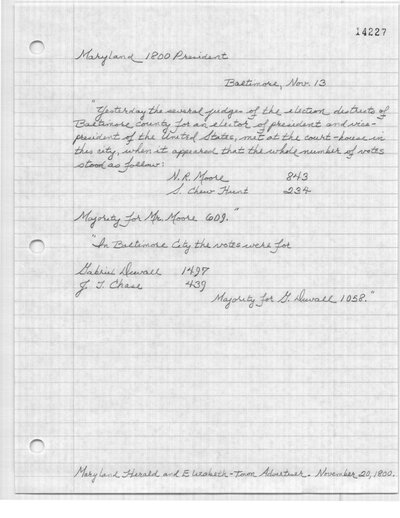 14227
Maryland 1800 President
Baltimore, Nov. 13
"Yesterday the several judges of the election districts of
Baltimore county for an elector of president and vice-
president of the United States, met at the court-house in
this city, when it appeared that the whole number of votes
stood as follow:
N. R. Moore 843
S. Chew Hunt 234
Majority for Mr. Moore 609."
"In Baltimore City the votes were for
Gabriel Duvall 1497
J. T. Chase 439
Majority for G. Duvall 1058."
Maryland Herald and Elizabeth-Town Advertiser. November 20, 1800.